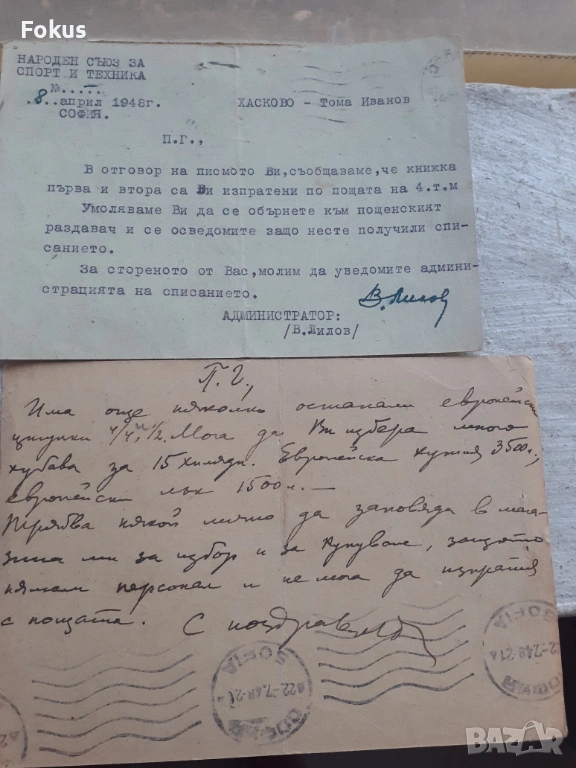 Fokus
НАРОДЕН СЪЮЗ ЗА
СПОРТ И ТЕХНИКА
№.....
8..април 1948г.
СОФИЯ.
ХАСКОВО - Тома Иванов
П.Г.,
В отговор на писмото Ви,съобщаваме,че книжка
първа и втора са Ви изпратени по пощата на 4.т.м
Умоляваме Ви да се обърнете към пощенският
раздавач и се осведомите защо несте получили спи-
санието.
За стореното от Вас,молим да уведомите админи-
страцията на списанието.
АДМИНИСТРАТОР:
/В.Лилов/
В. Лилов
П. Г.,
Има още няколко останали европейски
цигулки 4/4, и 1/2. Мога да Ви избера много
хубава за 15 хиляди. Европейска кутия 3500 л.,
европейски лък 1500 л. —
Трябва някой лично да заповяда в мага-
зина ми за избор и за купуване, защото
нямам персонал и не мога да изпратя
с пощата. С поздрав
SOFIA
22-7.48-21
СОФИЯ
SOFIA
22-7.48-21
СОФИЯ
bazar